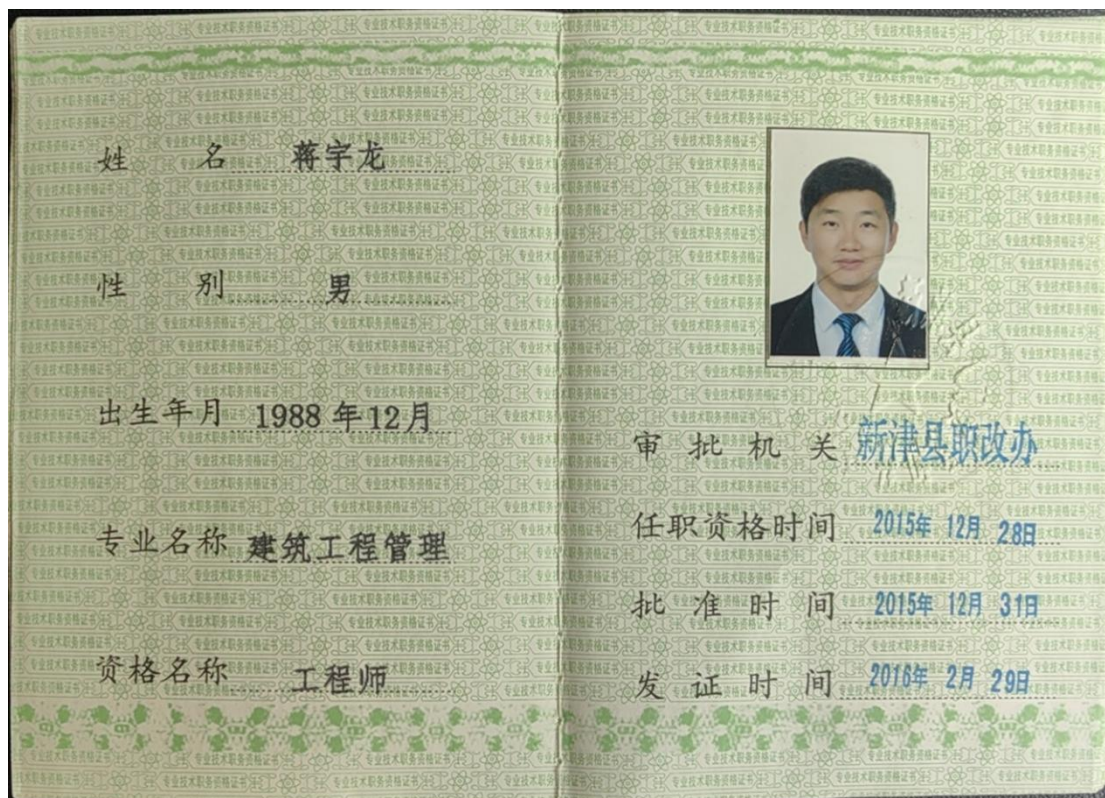 姓名 蒋宇龙
性别 男
出生年月 1988年12月
专业名称 建筑工程管理
资格名称 工程师
审批机关 新津县职改办
任职资格时间 2015年12月28日
批准时间 2015年12月31日
发证时间 2016年2月29日
专业技术职务资格证书